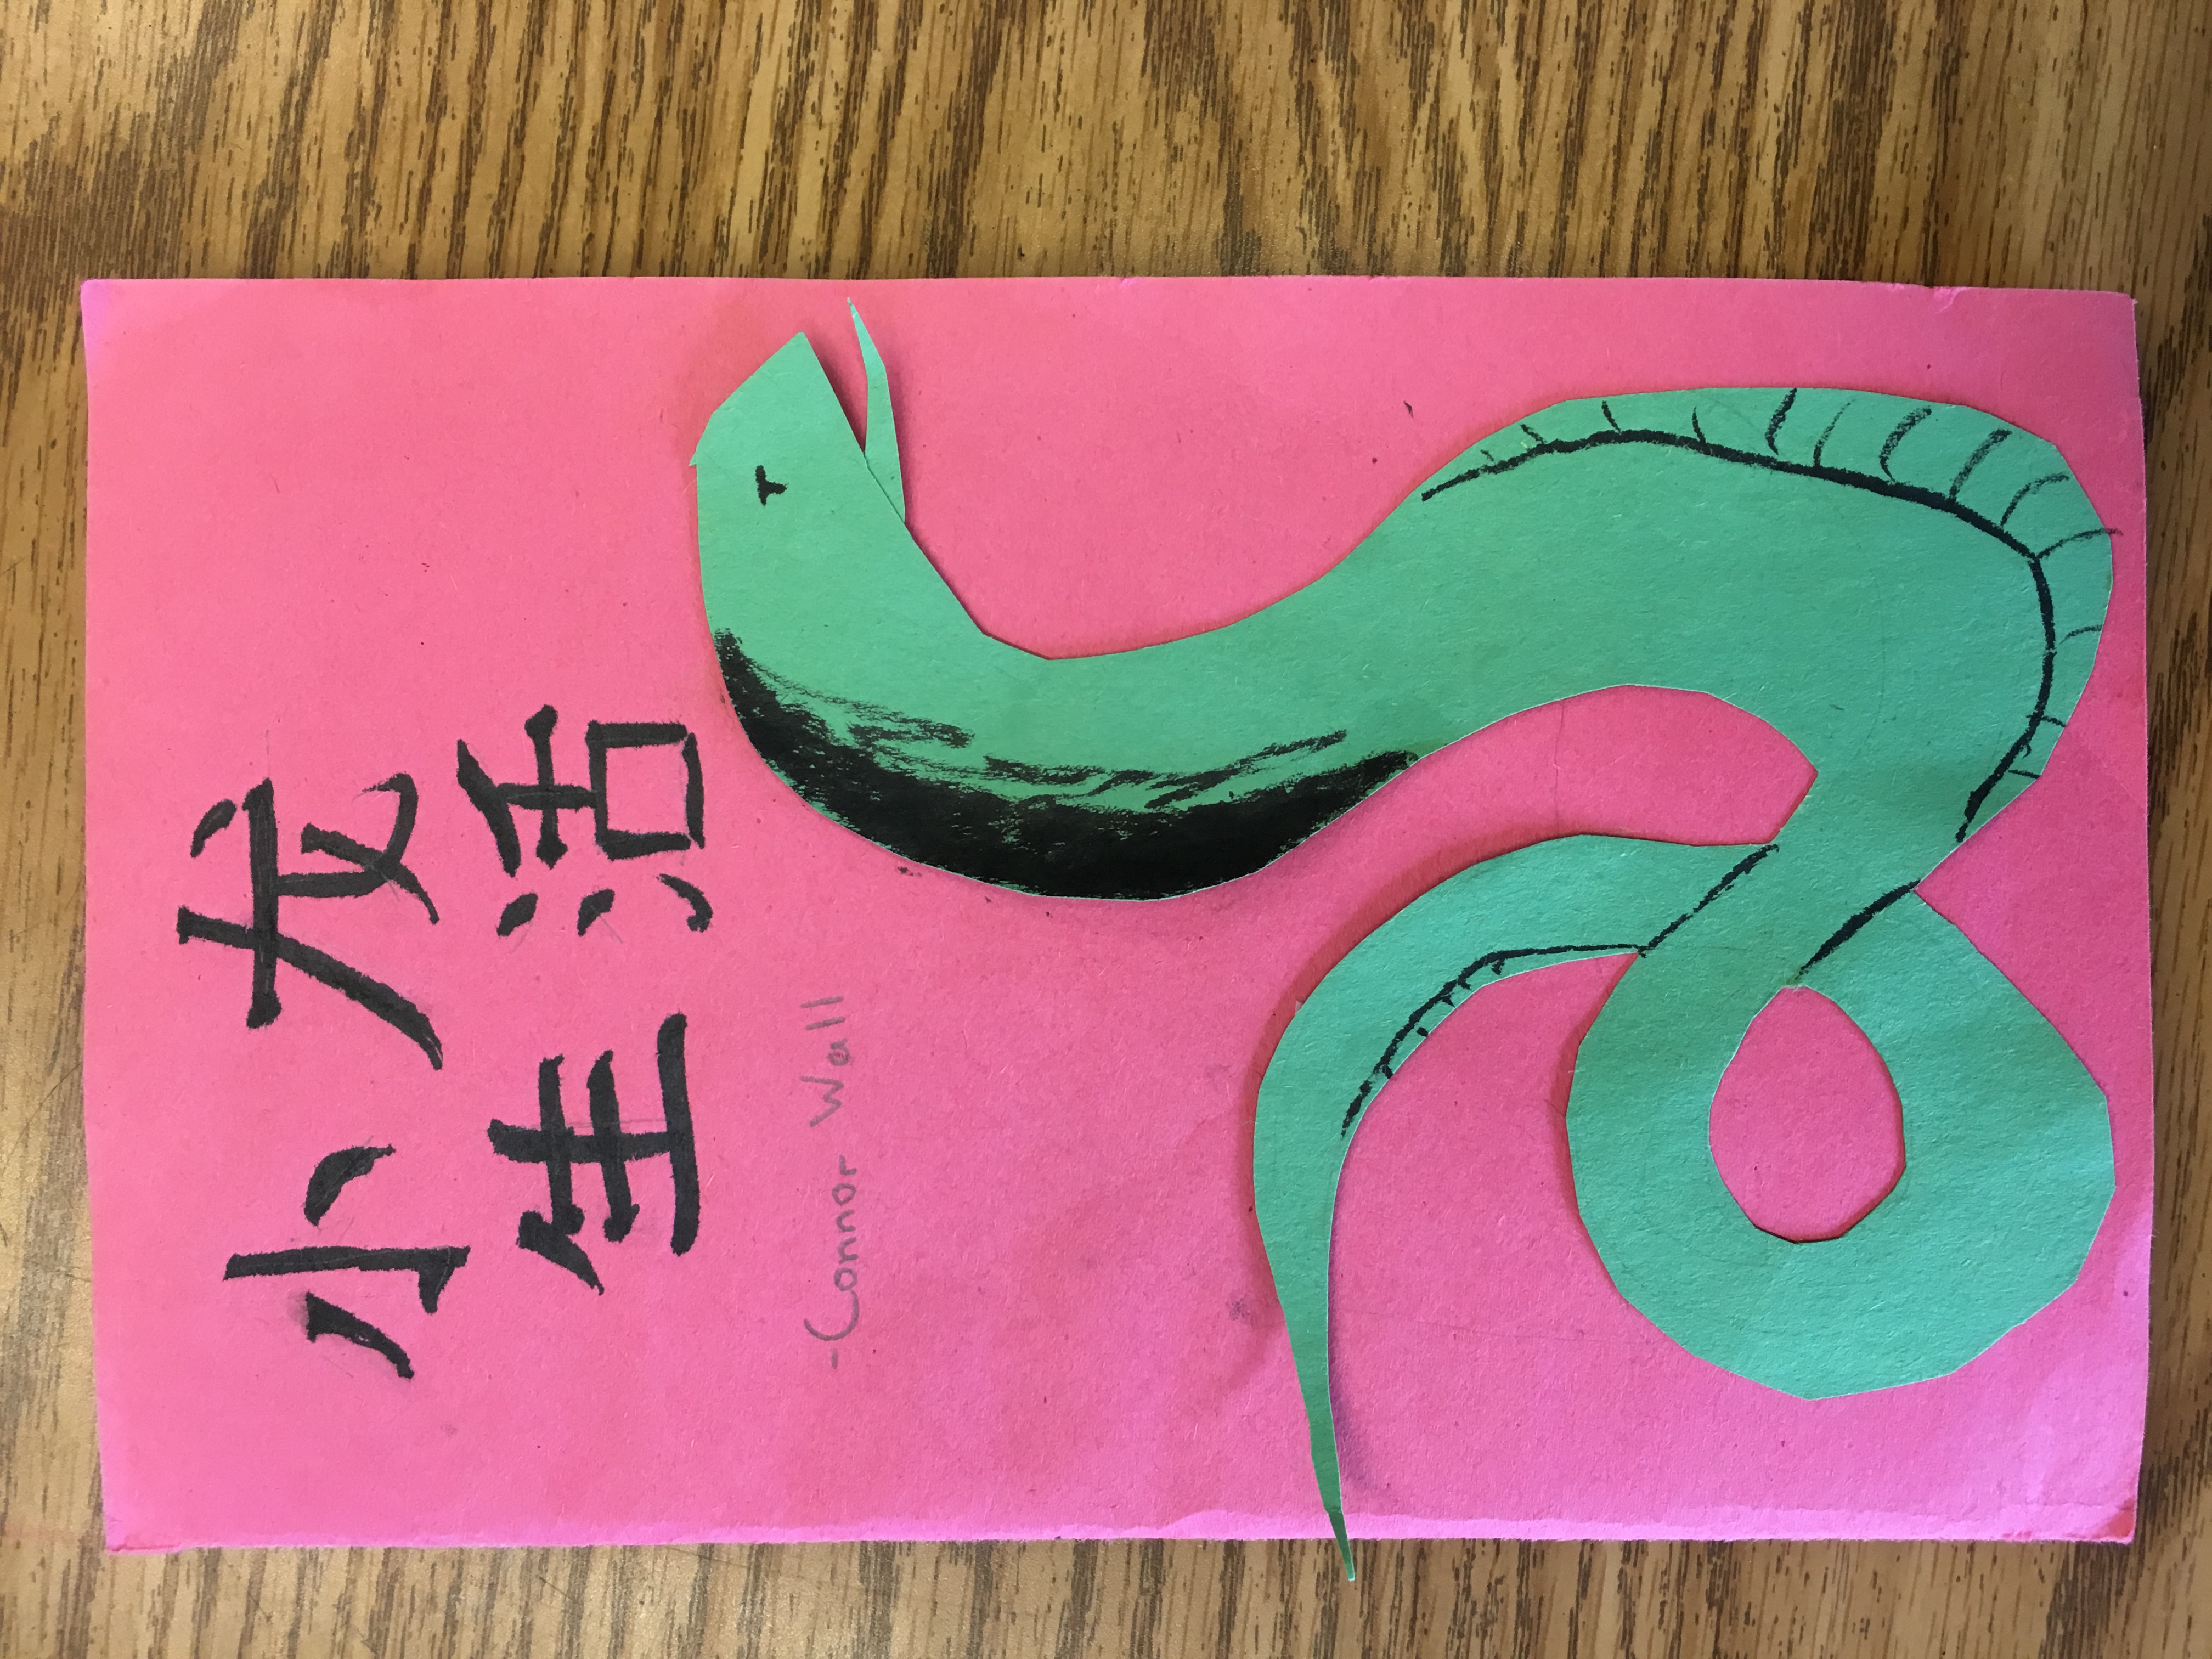 小龙
生活
-Connor Wall